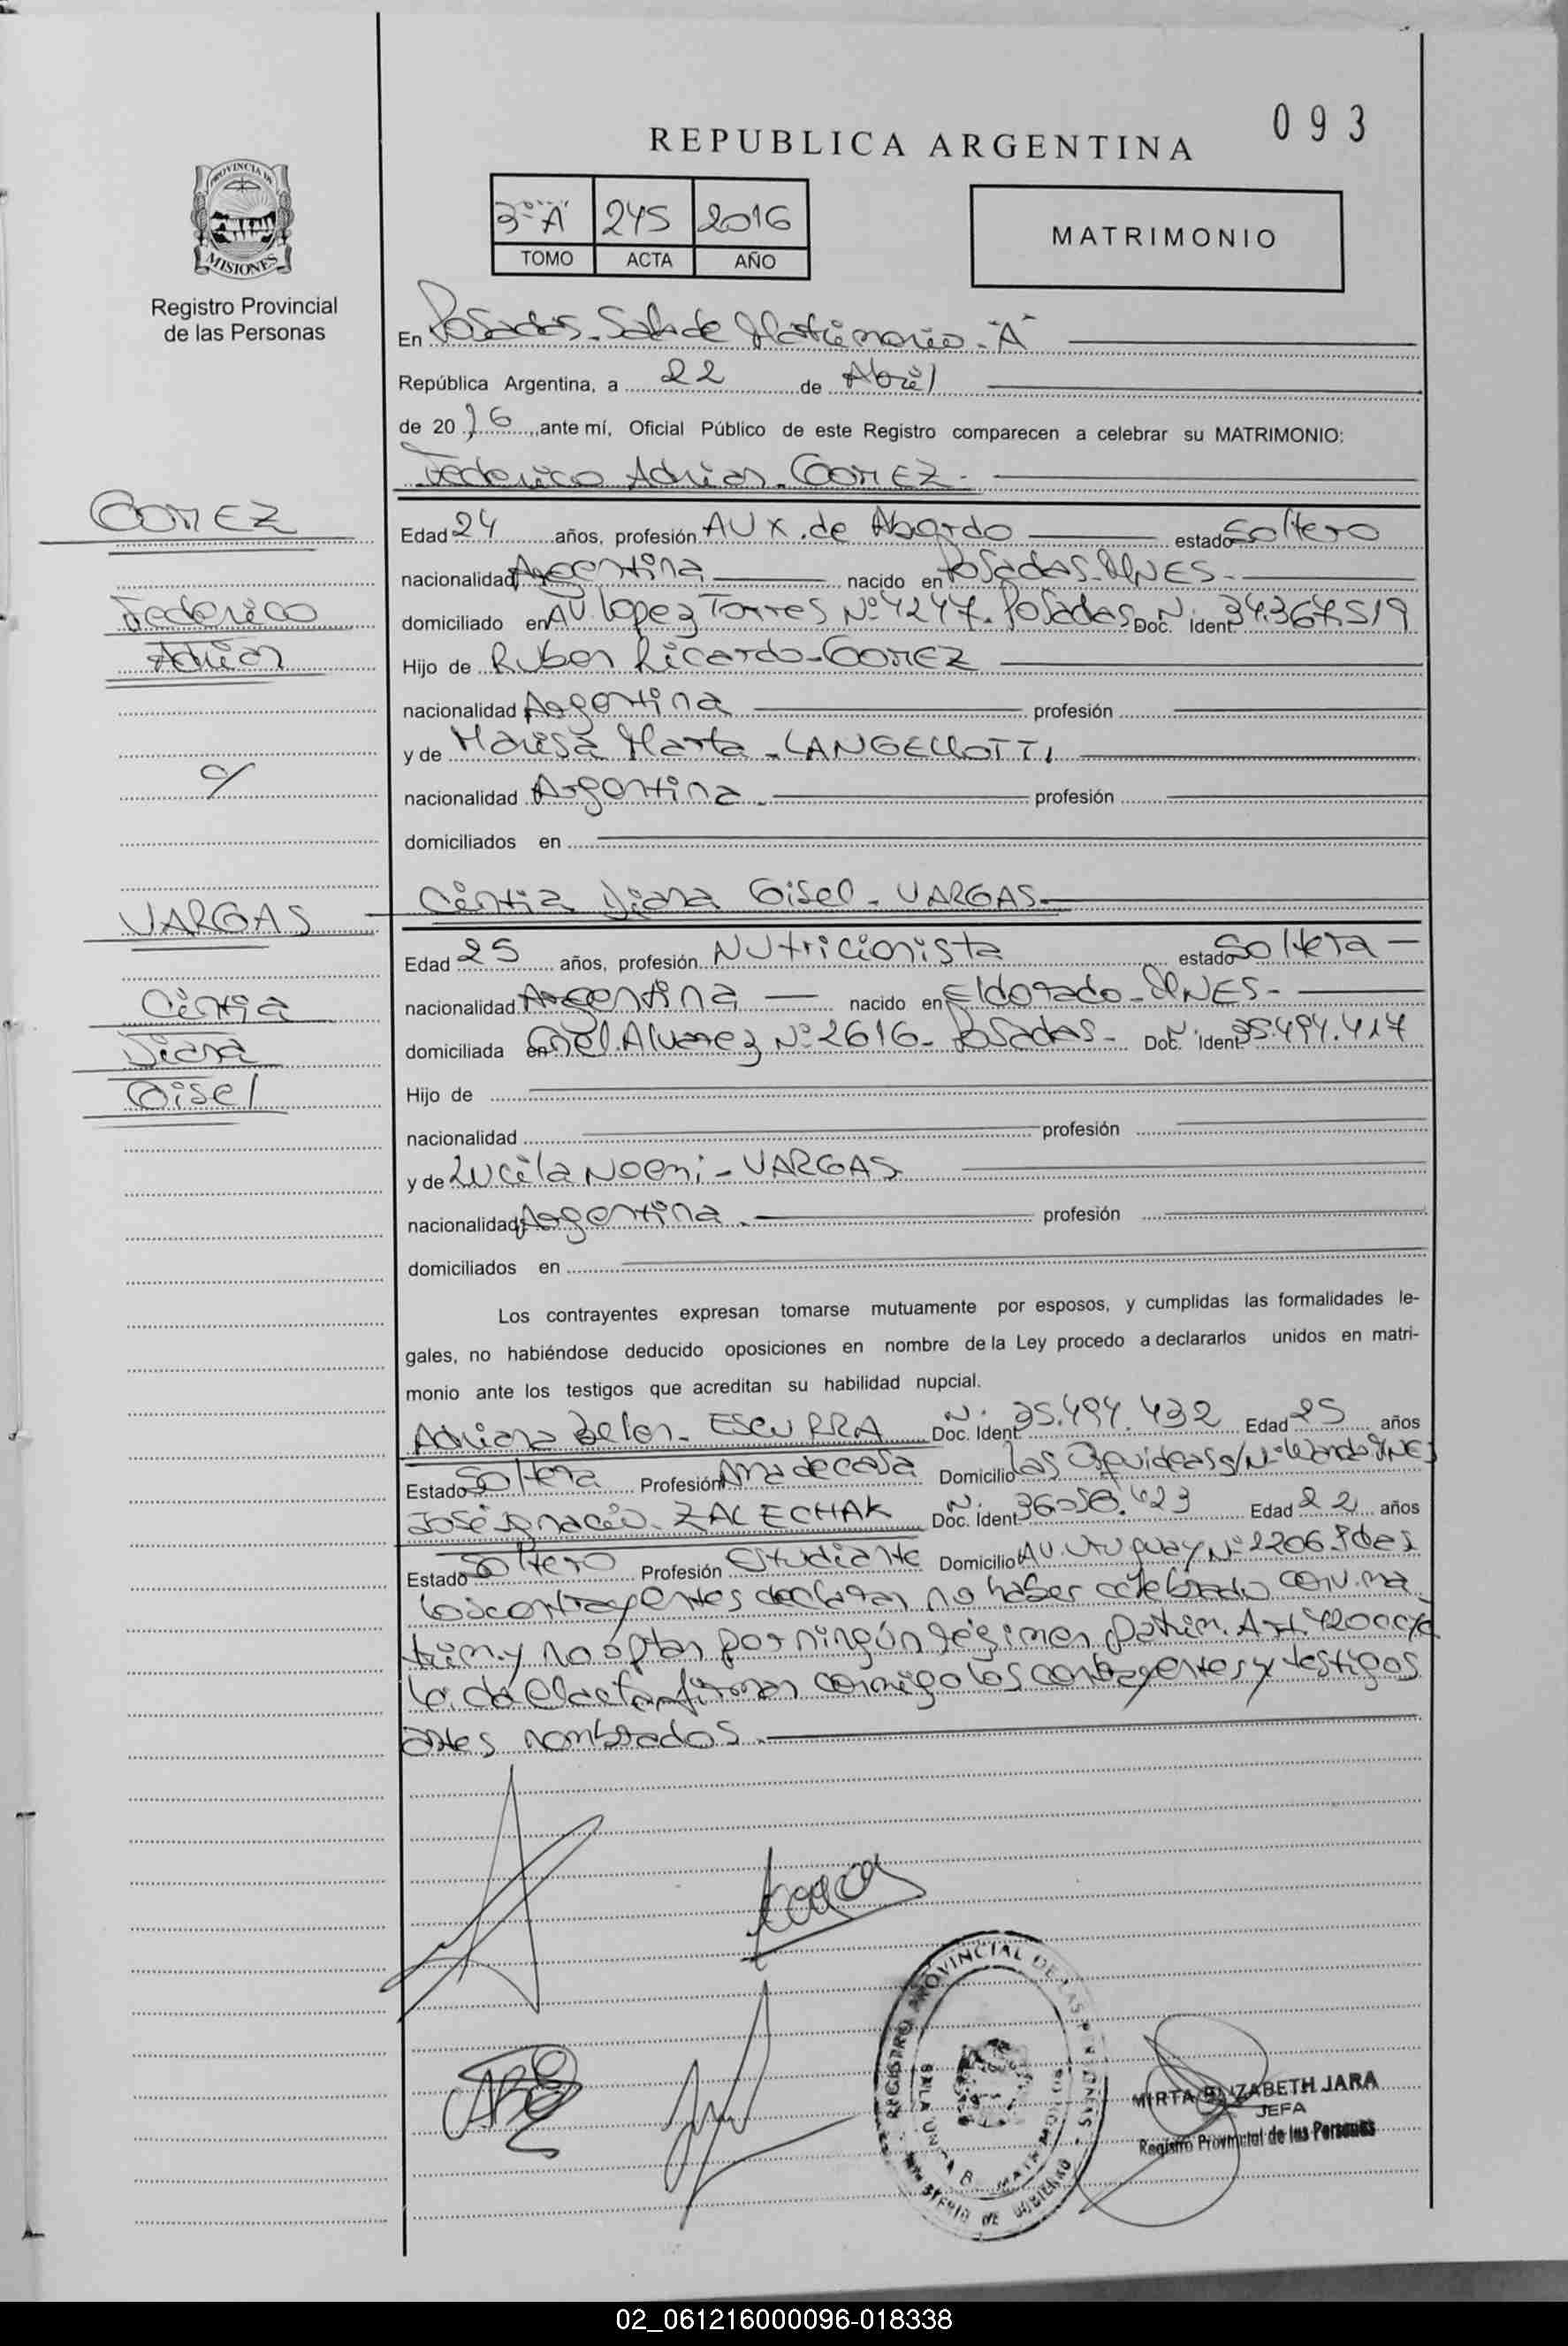 093
REPUBLICA ARGENTINA
PROVINCIA DE
MISIONES
Registro Provincial
de las Personas
3º "A" 245 2016
TOMO ACTA AÑO
MATRIMONIO
En Posadas - Sala de Matrimonio - "A"
República Argentina, a 22 de Abril
de 2016, ante mí, Oficial Público de este Registro comparecen a celebrar su MATRIMONIO:
Federico Adrian - GOMEZ -
GOMEZ
Federico
Adrian
c/
VARGAS
Cintia
Diana
Gisel
Edad 24 años, profesión AUX. de Abordo estado Soltero
nacionalidad Argentina nacido en Posadas - MNES -
domiciliado en AV. Lopez Torres Nº 4247 - Posadas Doc. N. Ident. 34.367.519
Hijo de Ruben Ricardo - GOMEZ
nacionalidad Argentina profesión
y de Marisa Marta - LANGELLOTTI
nacionalidad Argentina - profesión
domiciliados en
Cintia Diana Gisel - VARGAS -
Edad 25 años, profesión Nutricionista estado Soltera -
nacionalidad Argentina nacido en Eldorado - MNES -
domiciliada en Cnel. Alvarez Nº 2616 - Posadas - Doc. N. Ident. 35.494.417
Hijo de
nacionalidad profesión
y de Lucila Noemi - VARGAS
nacionalidad Argentina - profesión
domiciliados en
Los contrayentes expresan tomarse mutuamente por esposos, y cumplidas las formalidades le-
gales, no habiéndose deducido oposiciones en nombre de la Ley procedo a declararlos unidos en matri-
monio ante los testigos que acreditan su habilidad nupcial.
Adriana Belen - ESCURRA Doc. N. Ident. 35.494.432 Edad 25 años
Estado Soltera Profesión Ama de casa Domicilio Las Orquideas s/Nº Wanda MNES
José Ignacio - ZALECHAK Doc. N. Ident. 36.058.423 Edad 22 años
Estado Soltero Profesión Estudiante Domicilio AV. Uruguay Nº 2206 Pdas
Los contrayentes declaran no haber celebrado conv. ma
trim. y no optan por ningún régimen patrim. Art. 420 ccy
Leída el acta, firman conmigo los contrayentes y testigos
antes nombrados.
REGISTRO PROVINCIAL DE LAS PERSONAS
MINISTERIO DE GOBIERNO
MIRTA ELIZABETH JARA
JEFA
Registro Provincial de las Personas
02_061216000096-018338